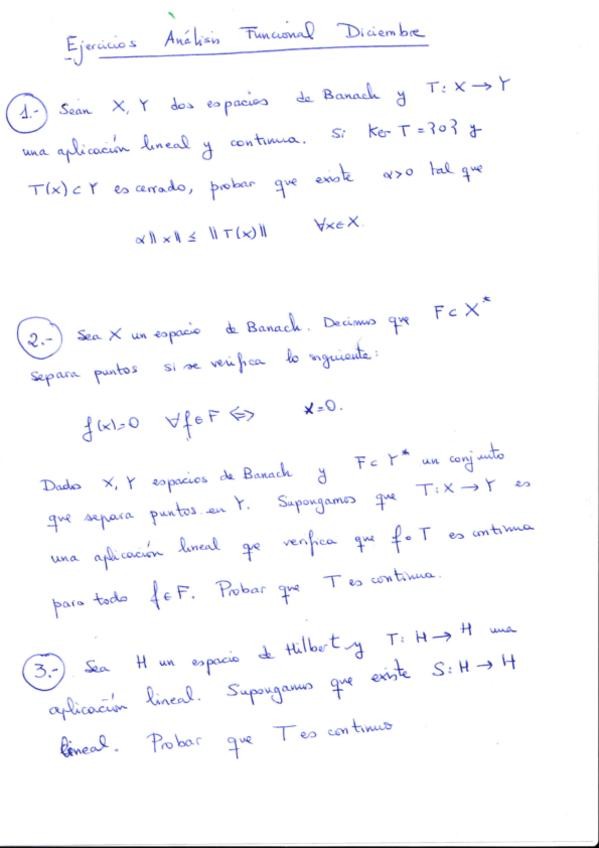 Ejercicios Análisis Funcional Diciembre
1.- Sean X, Y dos espacios de Banach y T: X → Y
una aplicación lineal y continua. Si Ker T = {0} y
T(X) ⊂ Y es cerrado, probar que existe α>0 tal que
α||x|| ≤ ||T(x)|| ∀x∈X.
2.- Sea X un espacio de Banach. Decimos que F ⊂ X*
separa puntos si se verifica lo siguiente:
f(x)=0 ∀f∈F ⇔ x=0.
Dados X, Y espacios de Banach y F ⊂ Y* un conjunto
que separa puntos en Y. Supongamos que T: X → Y es
una aplicación lineal que verifica que f∘T es continua
para todo f∈F. Probar que T es continua.
3.- Sea H un espacio de Hilbert y T: H → H una
aplicación lineal. Supongamos que existe S: H → H
lineal. Probar que T es continuo